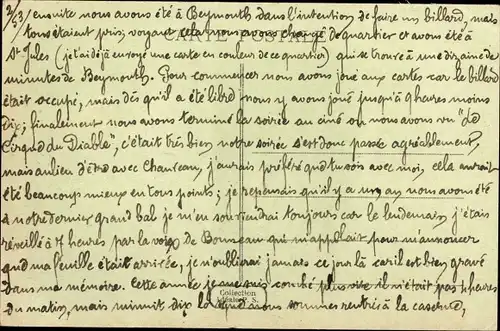 2/53/ ensuite nous avons été à Beymouth dans l'intention de faire un billard, mais
tous étaient pris, voyant cela nous avons changé de quartier et avons été à
St Jules (je t'ai déjà envoyé une carte en couleur de ce quartier) qui se trouve à une dizaine de
minutes de Beymouth. Pour commencer nous avons joué aux cartes car le billard
était occupé, mais dès qu'il a été libre nous y avons joué jusqu'à 9 heures moins
dix; finalement nous avons terminé la soirée au ciné où nous avons vu "Le
du Diable", c'était très bien, notre soirée s'est donc passée agréablement,
mais au lieu d'être avec j'aurais préféré que tu sois avec moi, cela aurait
été beaucoup mieux en tous points; je repensais qu'il y a un an nous avons été
à notre dernier grand bal je m'en souviendrai toujours car le lendemain, j'étais
réveillé à 7 heures par la voix de qui m'appelait pour m'annoncer
que ma feuille était arrivée, je n'oublierai jamais ce jour là car il est bien gravé
dans ma mémoire. Cette année je me suis couché plus vite il n'était pas 4 heures
du matin, mais minuit dix lorsque nous sommes rentrés à la caserne,
CARTE POSTALE
Collection